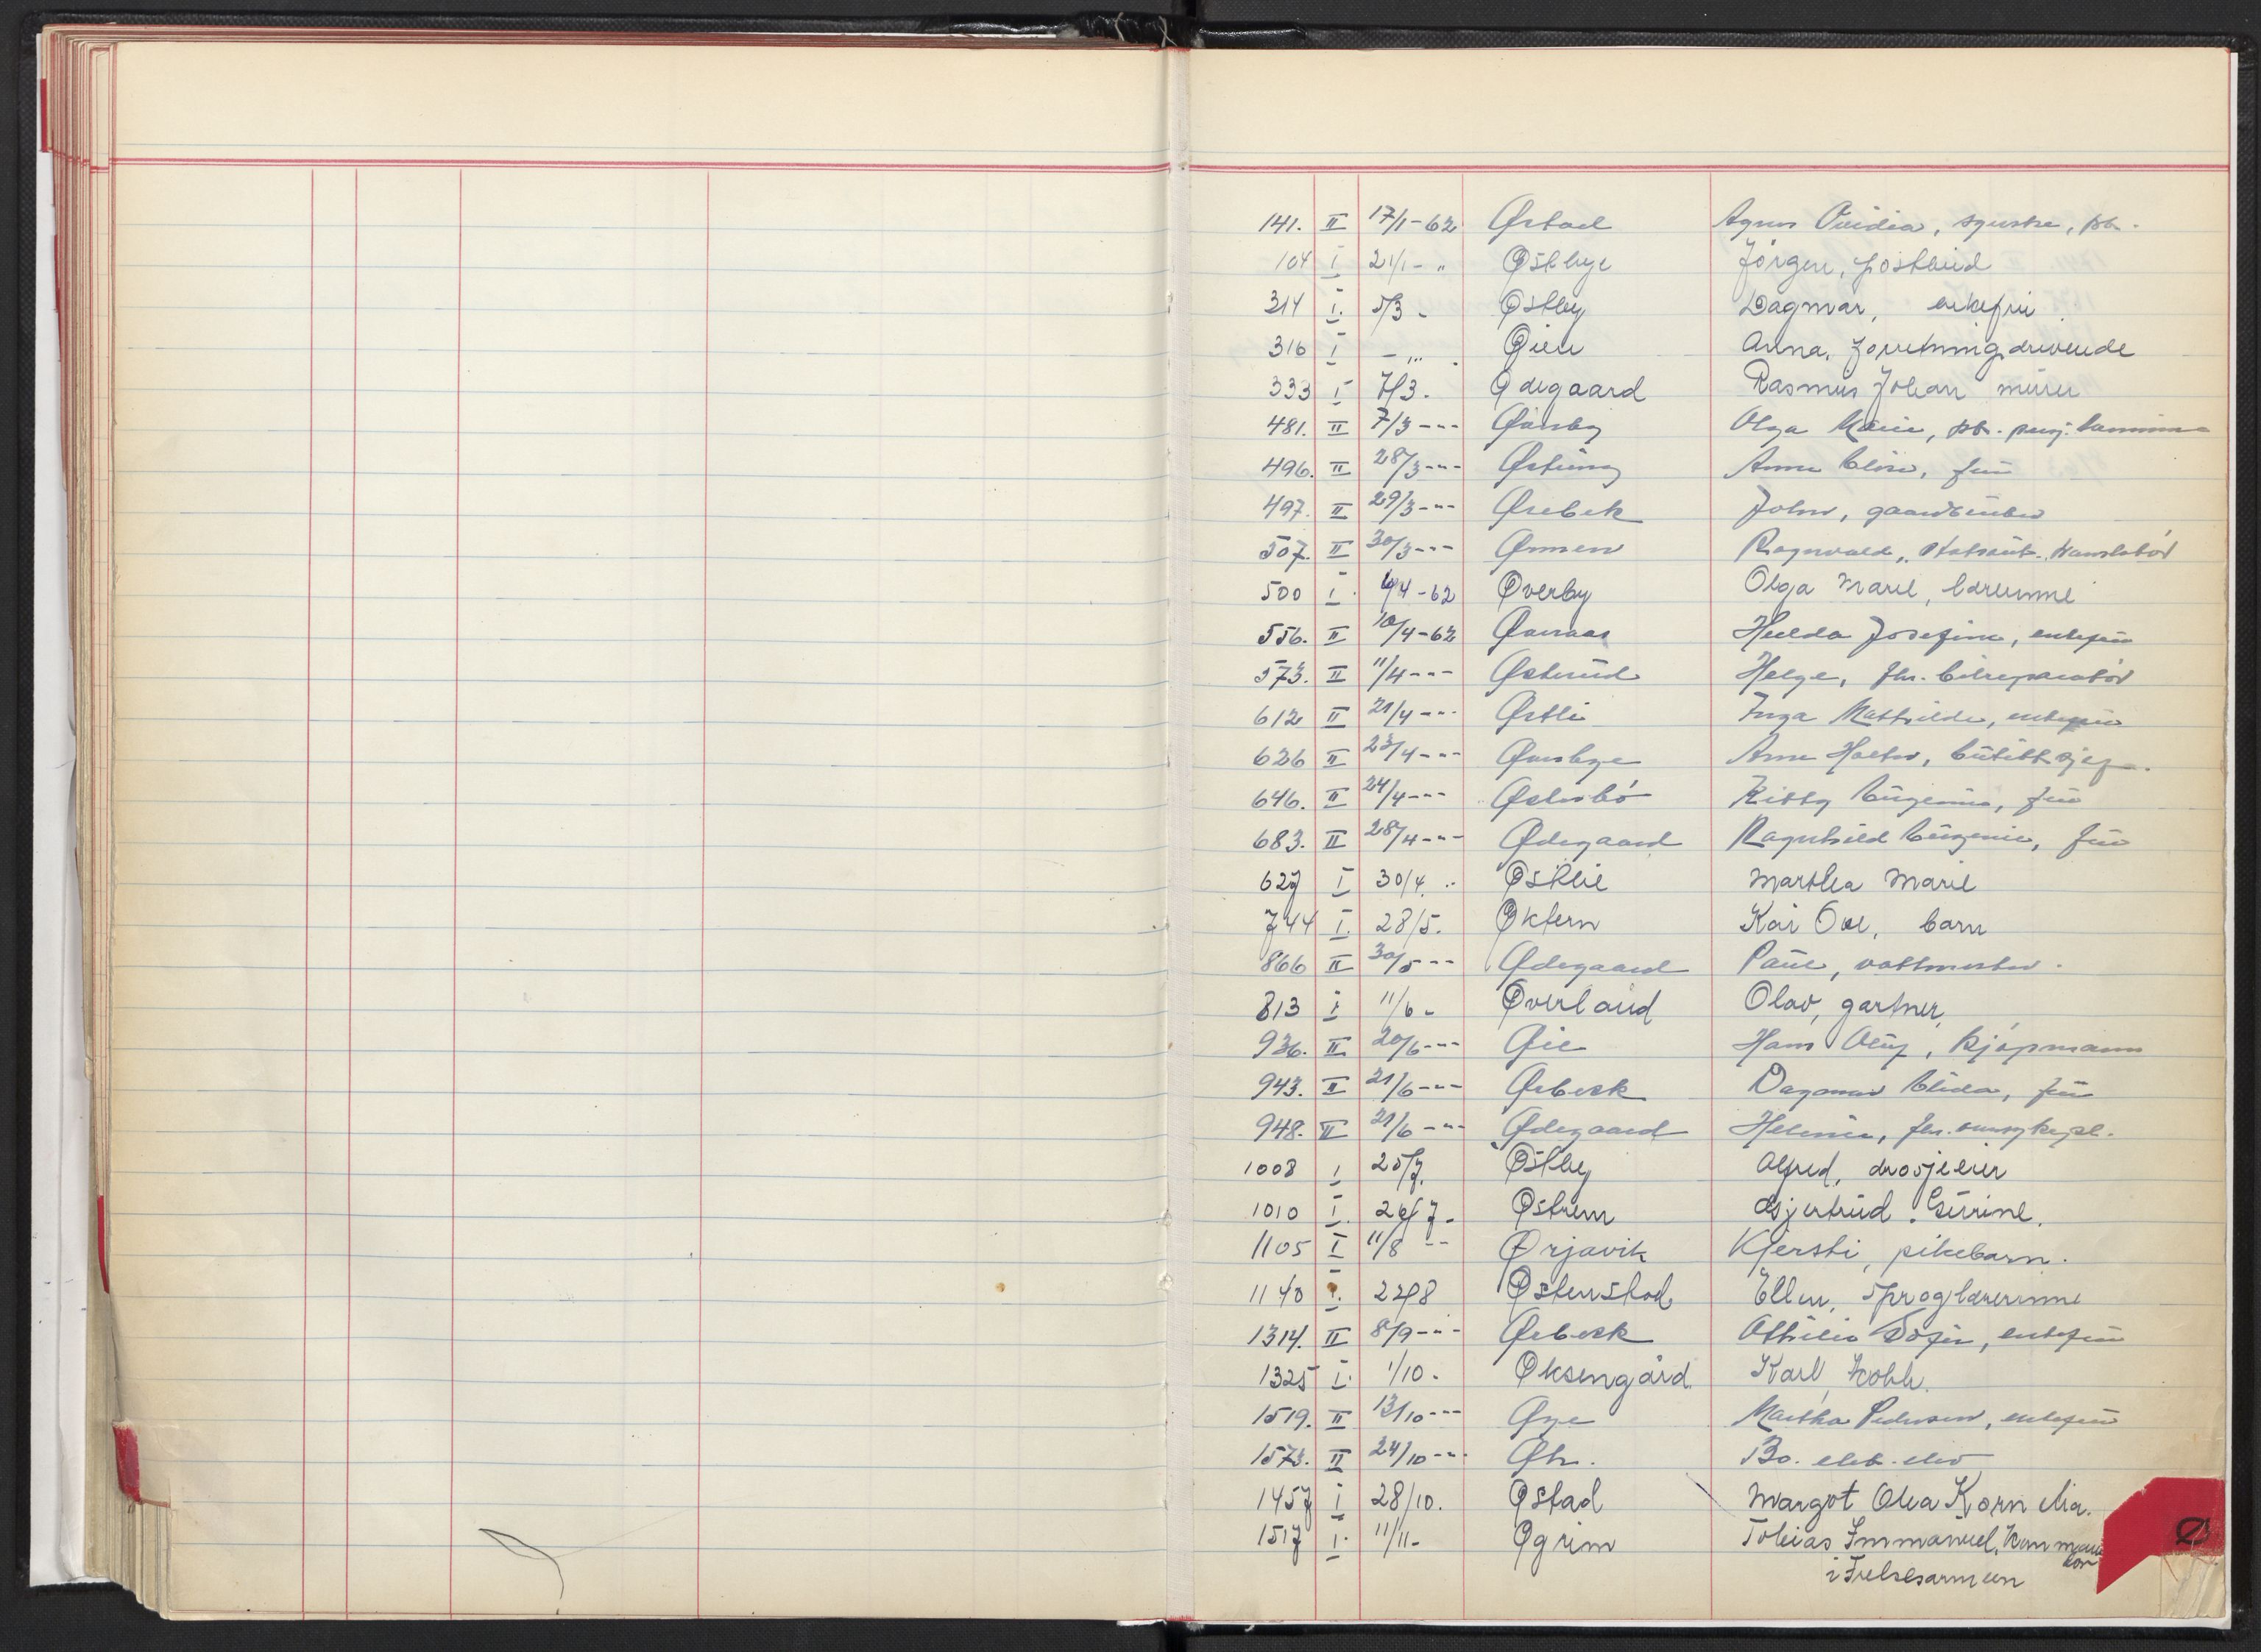 141. II 17/1-62 Østad Agnes Ovidia, syerske, pb.
104 I 21/1- " Østbye Jörgen, postbud
314 I. 5/3 - Østby Dagmar, enkefru
316 I - „ . Øien Anna, forretningdrivende
333 I 7/3. Ødegaard Rasmus Johan murer
481. II 7/3 -"- Olga Marie, pb. pensj.
496. II 28/3 -"- Anna Elise, fru
497. II 29/3 -"- Ørebek John, gaardbruker
507. II 30/3 -"- Ønnen Ragnvald,
500 I. 4/4-62 Øverby Olga Marie, lærerinne
556. II 10/4-62 Hulda Josefine, enkefru
573. II 11/4 -"- Østerud Helge, fhv. bilreparatör
612 II 21/4 -"- Østli Inga Mathilde, enkefru
626 II 23/4 -"- Arne butikksjef.
646. II 24/4 -"- Østerbó Kitty Eugenie, fru
683. II 28/4 -"- Ødegaard Ragnhild Eugenie, fru
627 I 30/4 .. Østlie Martha Marie
744 I. 28/5. Øktern Kai Ove, barn
866 II 30/5 -"- Ødegaard Paul, vaktmester.
813 I 11/6 - Øverland Olav, gartner,
936. II 20/6 -"- Øie Hans Oluf, kjöpmann
943. II 21/6 -"- Ørbeck Dagmar Elida, fru
948. II 21/6 -"- Ødegaard Helene, fhv. oversykepl.
1008 I 25/7. Østby Alfred, drosjeeier
1010 I. 26/7 - Østrem Gjertrud Gurine.
1105 I 11/8 -- Ørjavik Kjersti, pikebarn.
1140 I. 22/8 Østenstad Ellen, Sproglærerinne
1314. II 8/9 -"- Ørbeck Othilie Sofie, enkefru
1325 I. 1/10. Øksengård Karl, kobbl.
1519. II 13/10 -"- Øye Martha Pedersen, enkefru
1573. II 24/10 -"- Øh. Bo. elek. elev
1457 I 28/10. Østad Margot Olea Kornelia.
1517 I. 11/11- Øgrim Tobias Immanuel, Kommandör
i Frelsesarmeen
Ø